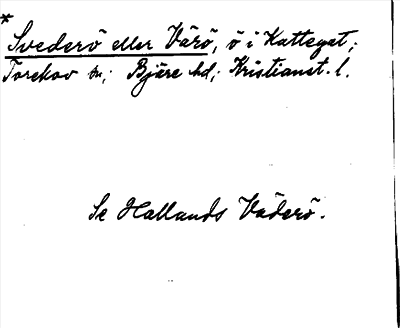 *
Svederö eller Värö, ö i Kattegat;
Torekov sn; Bjäre hd; Kristianst. l.
Se Hallands Väderö.